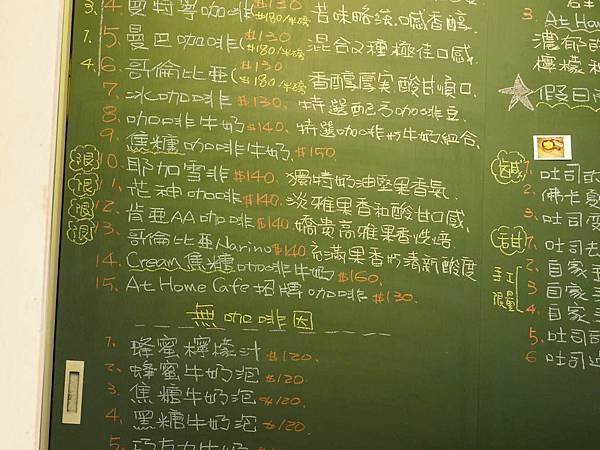 3. 4. 曼特寧咖啡 $180/半磅 苦味略強,喊香醇
1. 5. 曼巴咖啡( $130 $180/半磅 混合2種極佳口感.
4. 6. 哥倫比亞( $130 $180/半磅 香醇厚實酸甘順口.
7. 冰咖啡 $130. 特選配方咖啡豆.
8. 咖啡牛奶 $140. 特選咖啡的牛奶組合.
9. 焦糖咖啡牛奶. $150
10. 耶加雪菲 $140. 獨特奶油堅果香氣.
11. 芒種咖啡 $140. 淡雅果香和酸甘口感.
12. 肯亞AA咖啡 $140 嬌貴高雅果香
13. 哥倫比亞Narino $140 充滿果香的清新酸度
14. Cream焦糖咖啡牛奶 $160.
15. At Home Cafe 招牌咖啡 $130.
無咖啡因
1. 蜂蜜檸檬汁 $120.
2. 蜂蜜牛奶泡 $120
3. 焦糖牛奶泡 $120
4. 黑糖牛奶泡 $120
5. 巧克力牛奶
3. At Hom
濃郁的
檸檬
假日
鹹
1. 吐司
2. 佛卡
3. 吐司
甜
1. 吐司
手工限量
2. 自家
3. 自家
4. 自家
5. 吐司
6 吐司